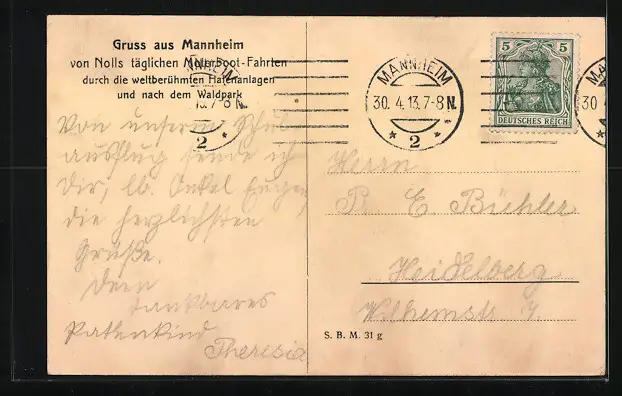 Gruss aus Mannheim
von Nolls täglichen Motorboot-Fahrten
durch die weltberühmten Hafenanlagen
und nach dem Waldpark
NHEIM
13.7-8N.
2
MANNHEIM
30. 4.13.7-8N.
2
5 5
DEUTSCHES REICH
MA
30
Von unserm Schul
ausflug sende ich
Dir, lb. Onkel Eugen
die herzlichsten
Grüße.
Dein
dankbares
Patenkind
Theresia
Herrn
P. E Bühler
Heidelberg
Wilhelmstr
S. B. M. 31 g